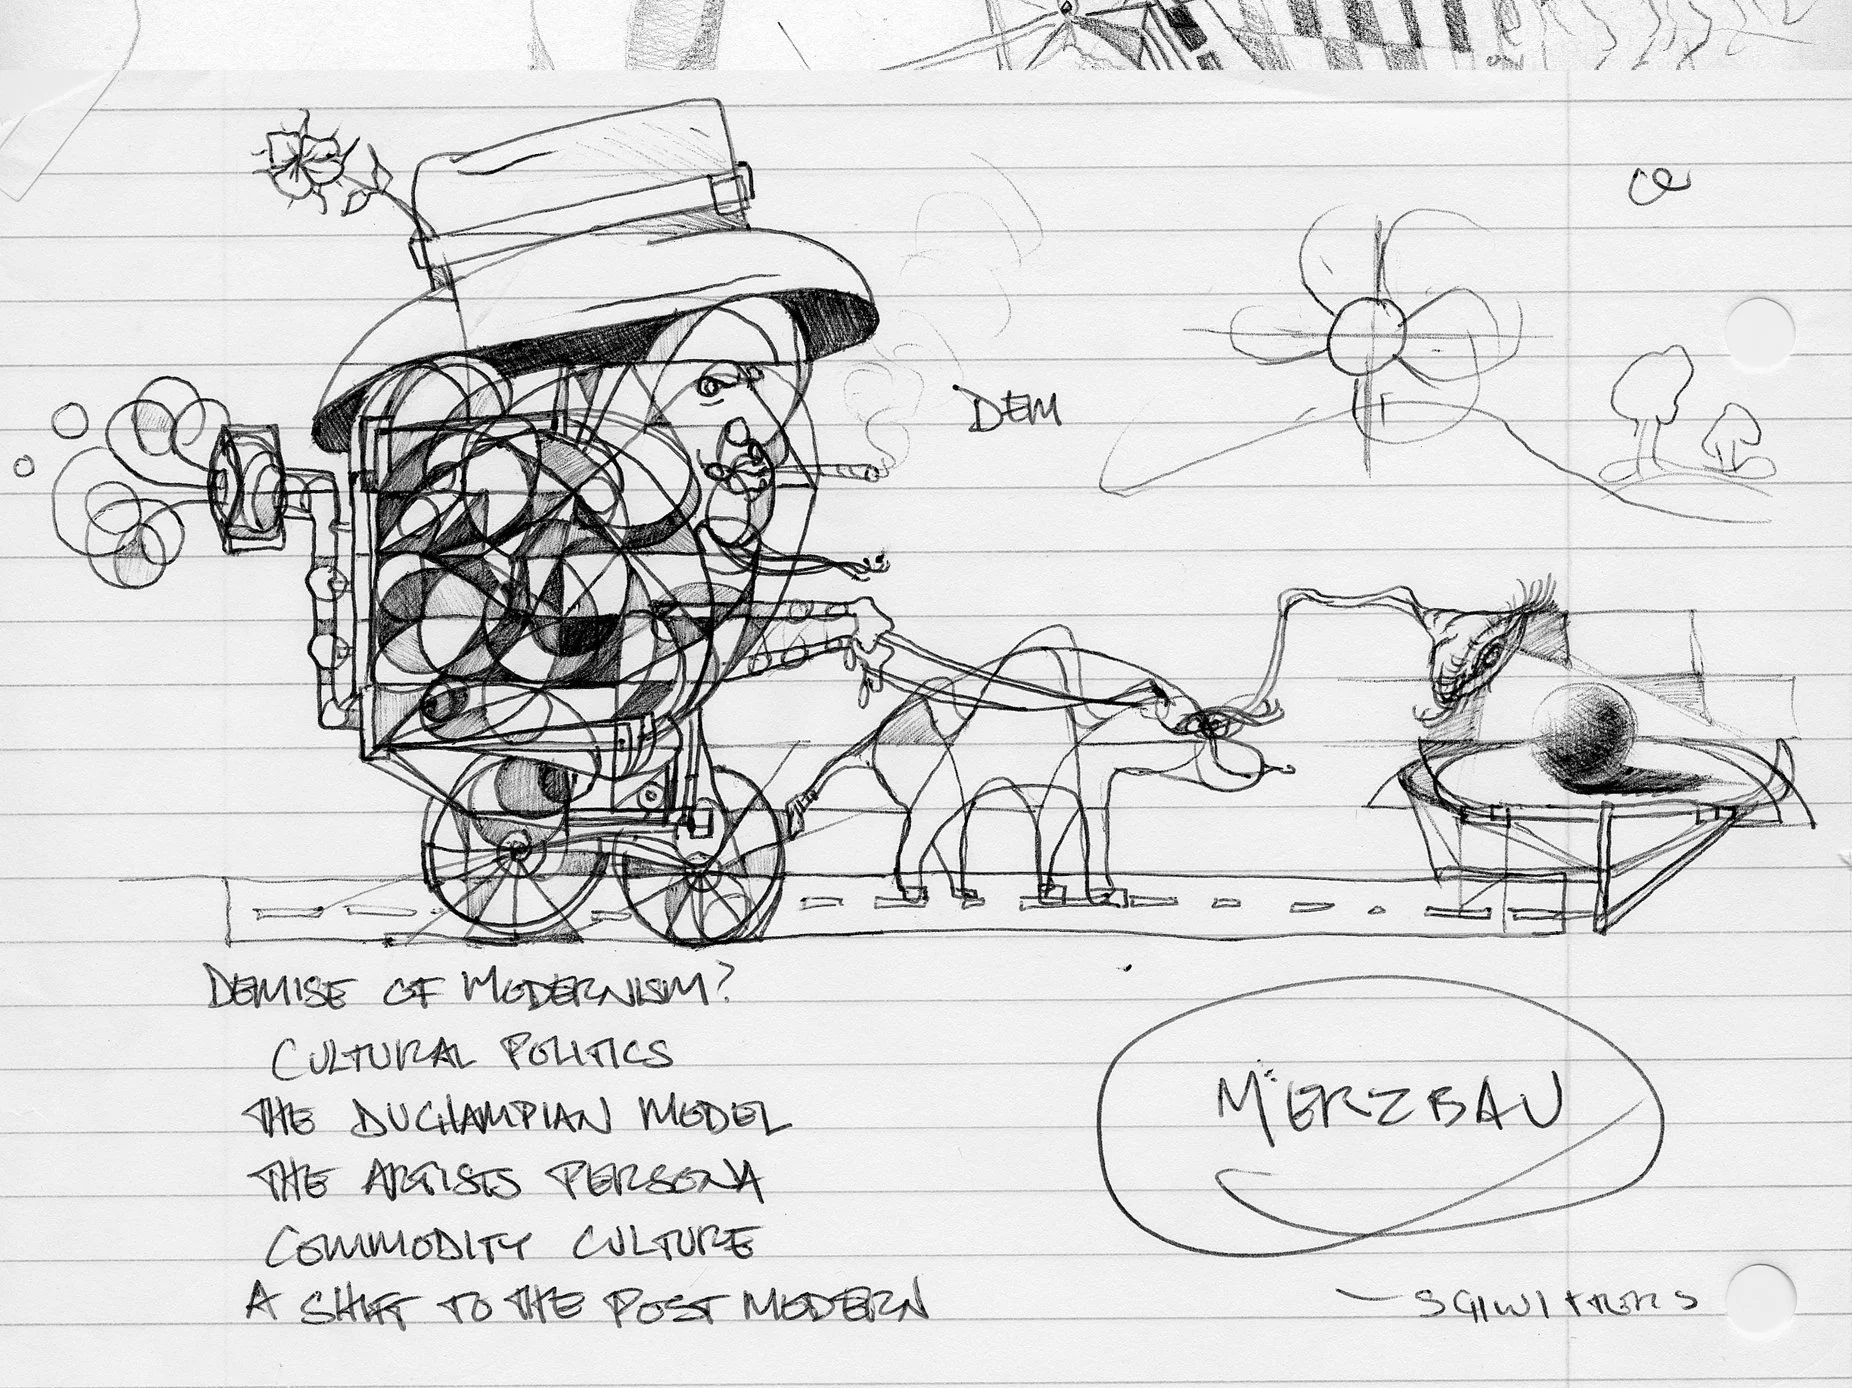 DEM
DEMISE OF MODERNISM?
CULTURAL POLITICS
THE DUCHAMPIAN MODEL
THE ARTISTS PERSONA
COMMODITY CULTURE
A SHIFT TO THE POST MODERN
MERZBAU